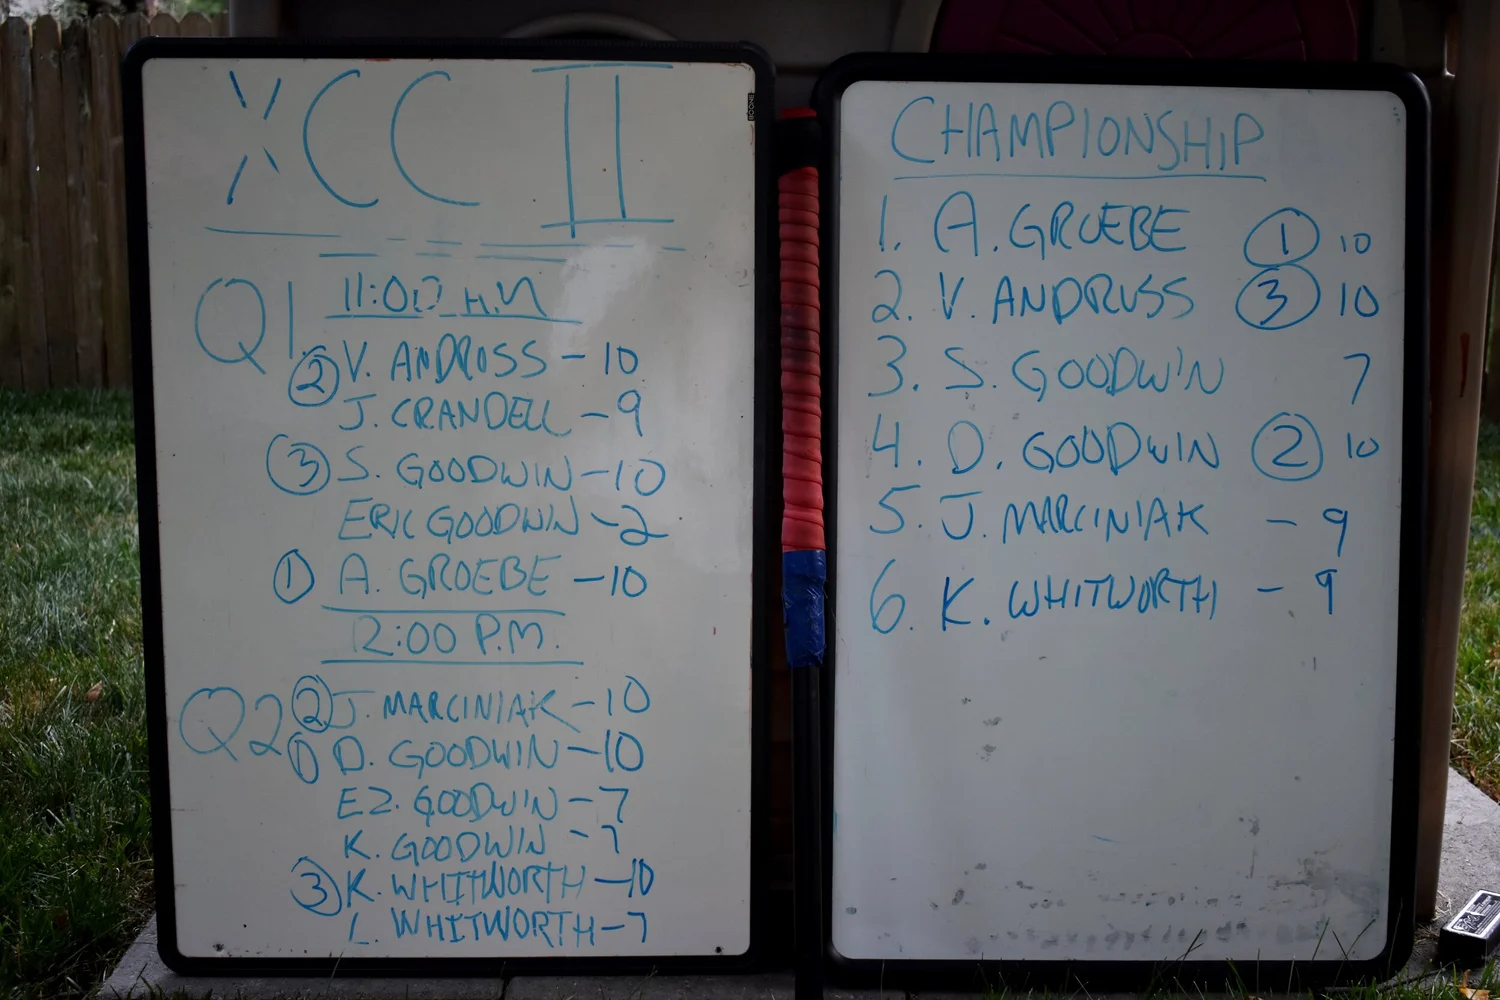 XCC II
Q1
11:00 A.M
② V. ANDRUSS - 10
J. CRANDELL - 9
③ S. GOODWIN - 10
ERIC GOODWIN - 2
① A. GROEBE - 10
12:00 P.M.
Q2
② J. MARCINIAK - 10
① D. GOODWIN - 10
EZ. GOODWIN - 7
K. GOODWIN - 7
③ K. WHITWORTH - 10
L. WHITWORTH - 7
CHAMPIONSHIP
1. A. GROEBE ① 10
2. V. ANDRUSS ③ 10
3. S. GOODWIN 7
4. D. GOODWIN ② 10
5. J. MARCINIAK - 9
6. K. WHITWORTH - 9